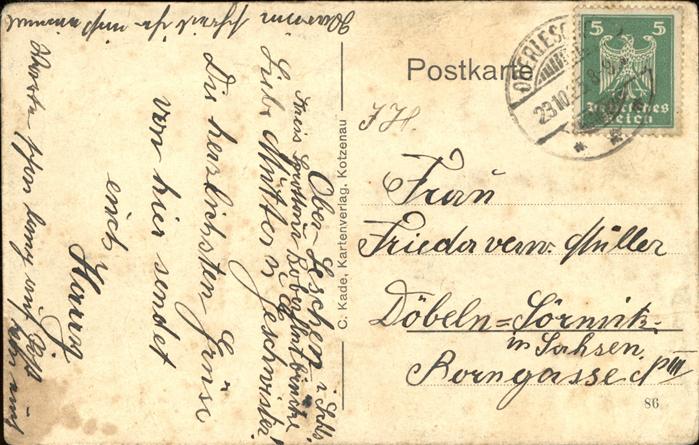 Postkarte
OBERLESCHEN
23.10.
5 5
Deutsches
Reich
F. H.
Frau
Frieda verw. Müller
Döbeln=Sörmitz
in Sachsen.
Korngasse
86
C. Kade, Kartenverlag, Kotzenau
Ober-Leschen i. Schls.
Kreis Sprottau
Liebe Mutter u. Geschwister!
Die herzlichsten Grüße
von hier sendet
euch
Harry
Warum schreibt ihr mir nicht einmal
Warte schon lang auf Post